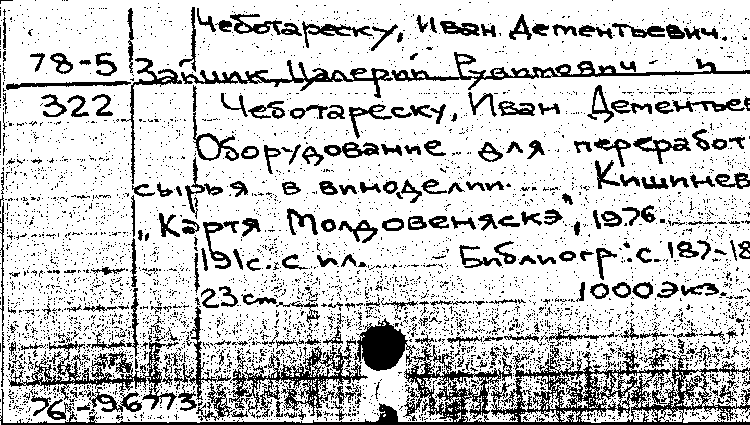 Чеботареску, Иван Дементьевич.
78-5
322 Чеботареску, Иван Дементьев
Оборудование для переработ
сырья в виноделии. Кишинев
„Картя Молдовеняскэ", 1976.
191с. с ил. Библиогр.: с. 187-18
23 см. 1000 экз.
76-96773